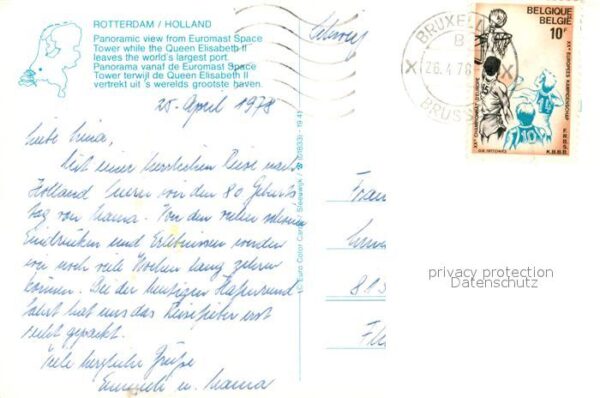 ROTTERDAM / HOLLAND
Panoramic view from Euromast Space
Tower while the Queen Elisabeth II
leaves the world's largest port.
Panorama vanaf de Euromast Space
Tower terwijl de Queen Elisabeth II
vertrekt uit 's werelds grootste haven.
25. April 1978
Liebe
Mit einer herrlichen Reise nach
Holland feiern wir den 80 Geburts
tag von Mama. Von den vielen schönen
Eindrücken und Erlebnissen werden
wir noch viele Wochen lang zehren
können. Bei der heutigen Hafenrund
fahrt hat uns das Reisefieber erst
recht gepackt.
Viele herzliche Grüße
u. Mama
Euro Color Cards
Schweiz
BRUXELLES
B
26.4.78
BRUSSEL
BELGIQUE
BELGIË
10F
F.R.B.S.B.
K.B.B.B.
Frau
813
privacy protection
Datenschutz